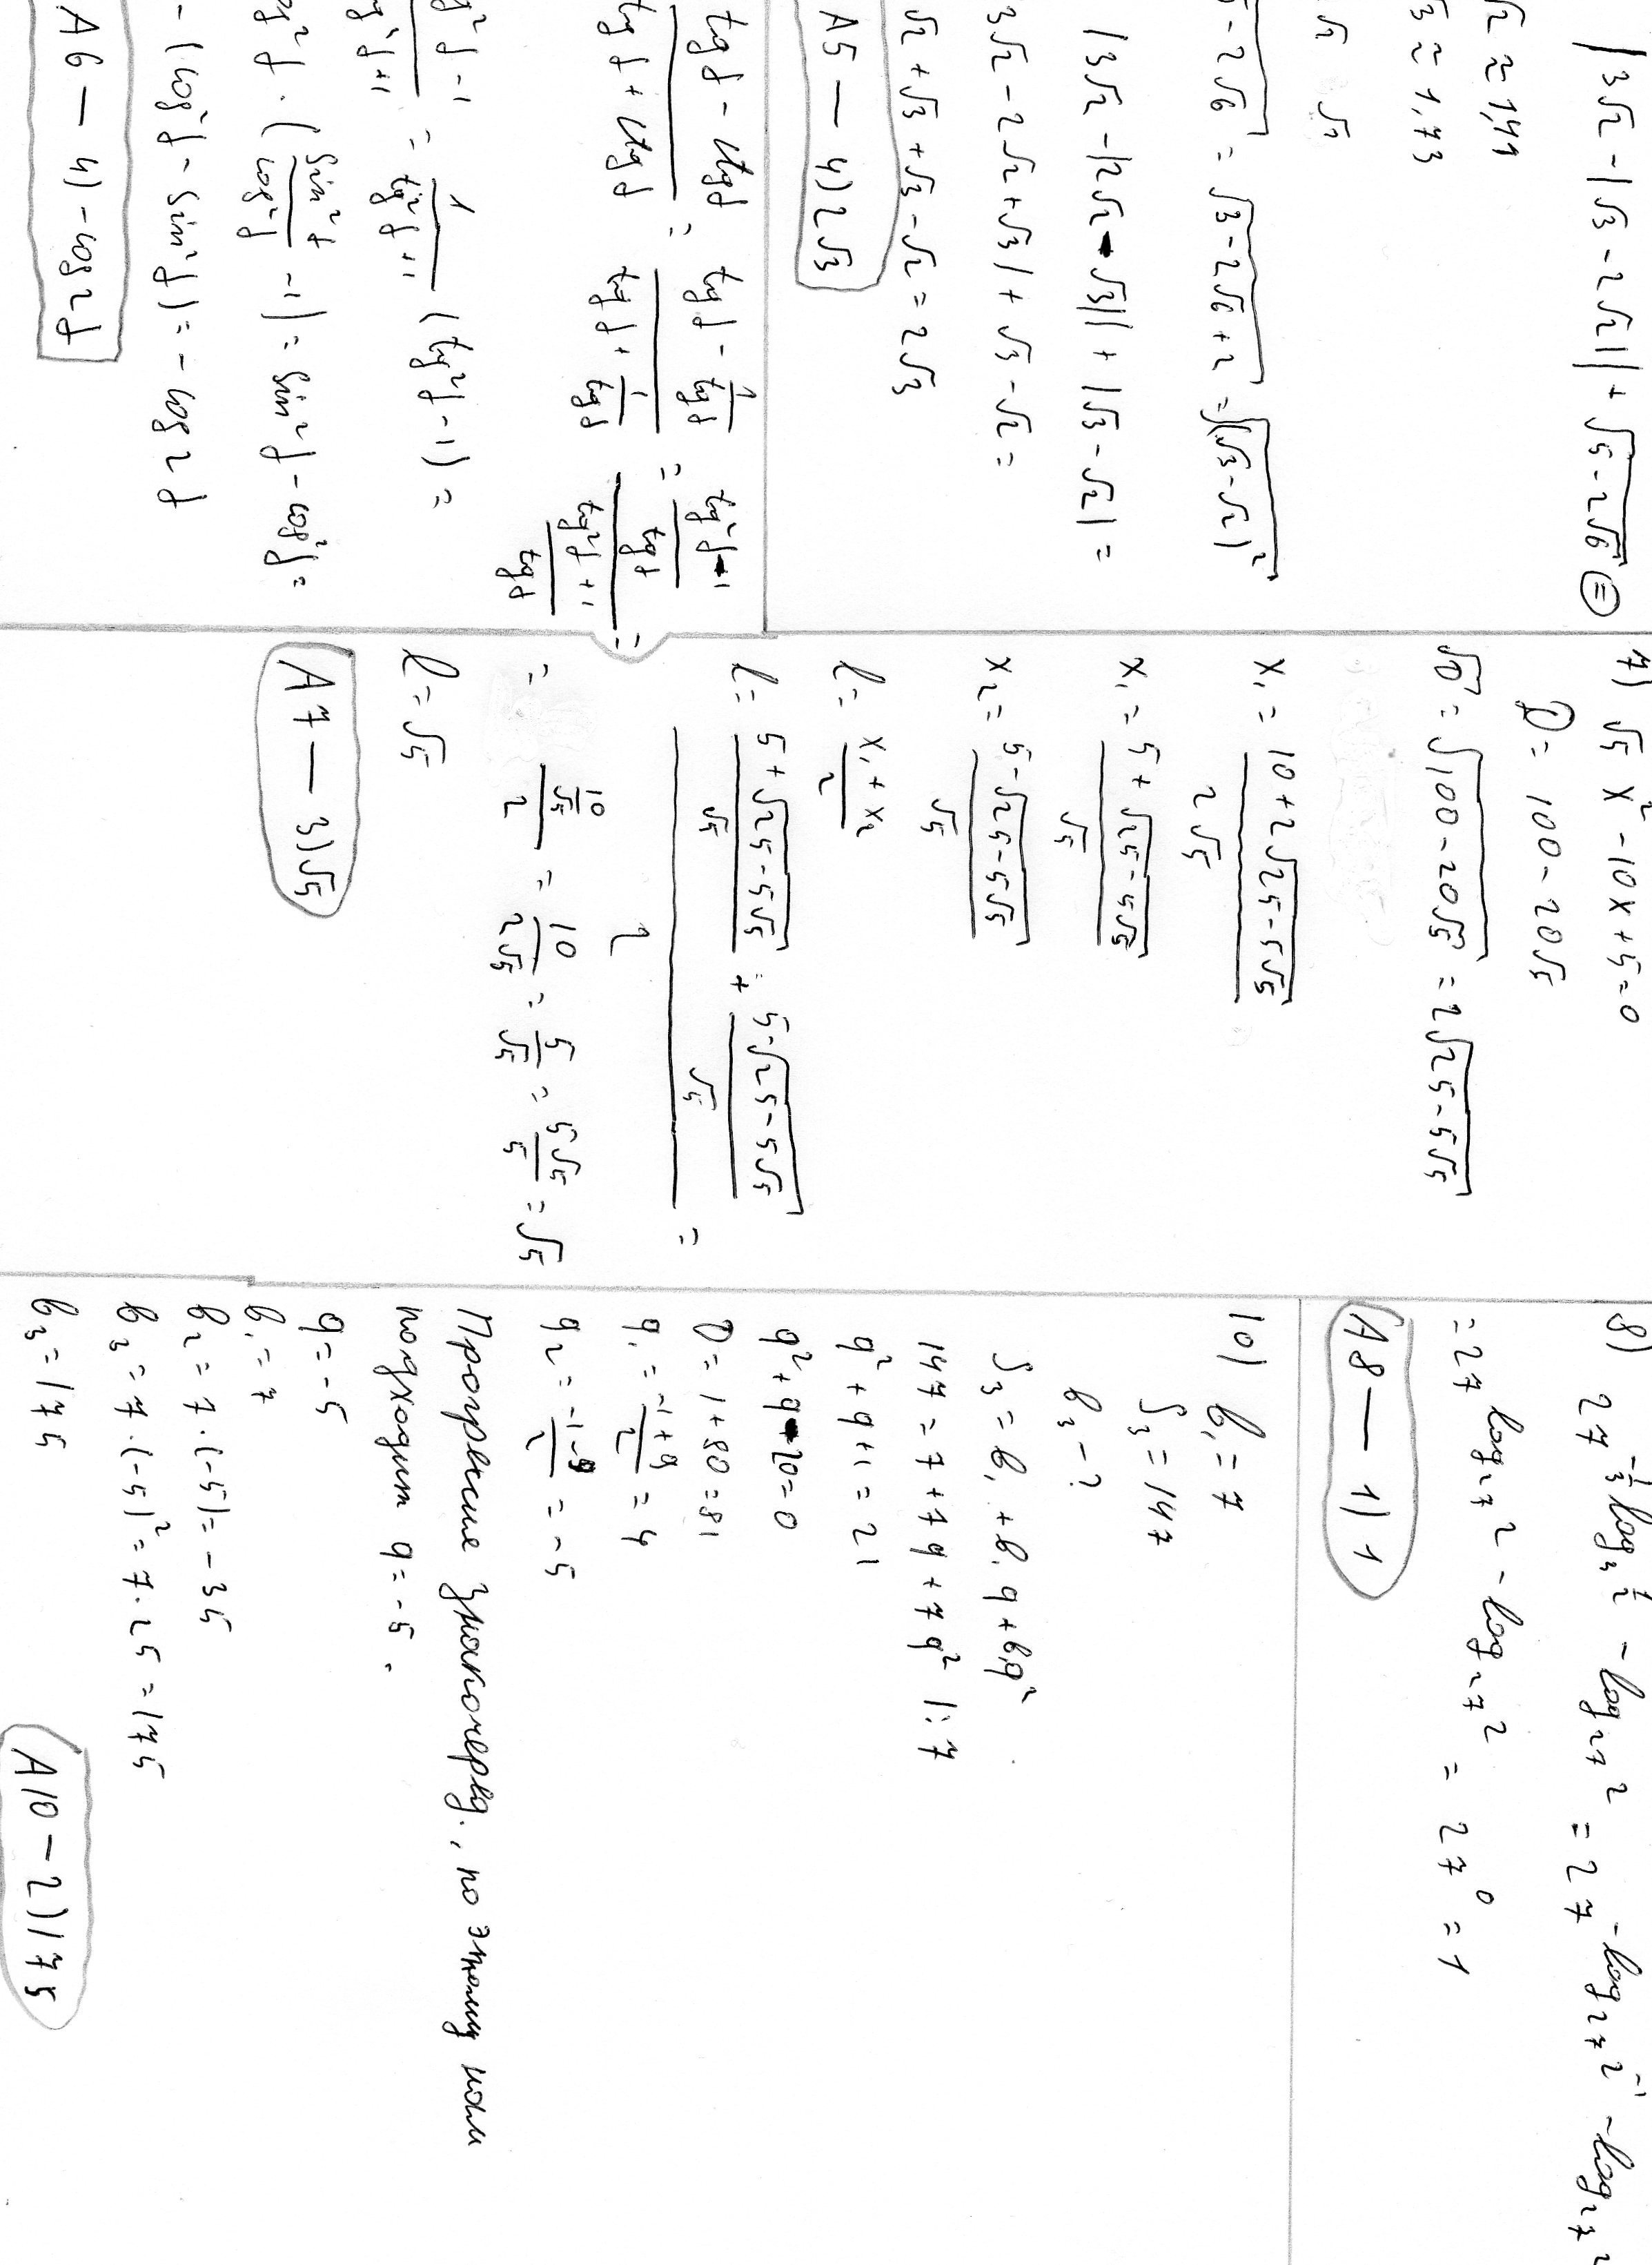 |3√2 - |√3 - 2√2|| + √(5 - 2√6) ⊜
√2 ≈ 1,41
√3 ≈ 1,73
√2 √2
5 - 2√6 = √(3 - 2√6 + 2) = √((√3 - √2)²)
|3√2 - |2√2 - √3|| + |√3 - √2| =
3√2 - 2√2 + √3| + √3 - √2 =
√2 + √3 + √3 - √2 = 2√3
A5 — 4) 2√3
(tg α - ctg α)/(tg α + ctg α) = (tg α - 1/tg α)/(tg α + 1/tg α) = ((tg²α - 1)/tg α)/((tg²α + 1)/tg α) =
(g²α - 1)/(g²α + 1) = 1/(tg²α + 1) (tg²α - 1) =
os²α · (sin²α/cos²α - 1) = sin²α - cos²α =
- (cos²α - sin²α) = - cos 2α
A6 — 4) - cos 2α
7) √5 x² - 10x + 5 = 0
D = 100 - 20√5
√D = √(100 - 20√5) = 2√(25 - 5√5)
x₁ = (10 + 2√(25 - 5√5))/(2√5)
x₁ = (5 + √(25 - 5√5))/√5
x₂ = (5 - √(25 - 5√5))/√5
l = (x₁ + x₂)/2
l = ((5 + √(25 - 5√5))/√5 + (5 - √(25 - 5√5))/√5)/2 =
= (10/√5)/2 = 10/(2√5) = 5/√5 = 5√5/5 = √5
l = √5
A7 — 3) √5
8) 27^(-1/3 log₃ 1/2 - log₂₇ 2) = 27^(-log₂₇ 2⁻¹ - log₂₇ 2)
= 27^(log₂₇ 2 - log₂₇ 2) = 27⁰ = 1
A8 — 1) 1
10) b₁ = 7
S₃ = 147
b₃ - ?
S₃ = b₁ + b₁q + b₁q²
147 = 7 + 7q + 7q² |: 7
q² + q + 1 = 21
q² + q - 20 = 0
D = 1 + 80 = 81
q₁ = (-1 + 9)/2 = 4
q₂ = (-1 - 9)/2 = -5
Прогрессия знакочеред., по этому нам
подходит q = -5.
q = -5
b₁ = 7
b₂ = 7 · (-5) = -35
b₃ = 7 · (-5)² = 7 · 25 = 175
b₃ = 175
A10 — 2) 175